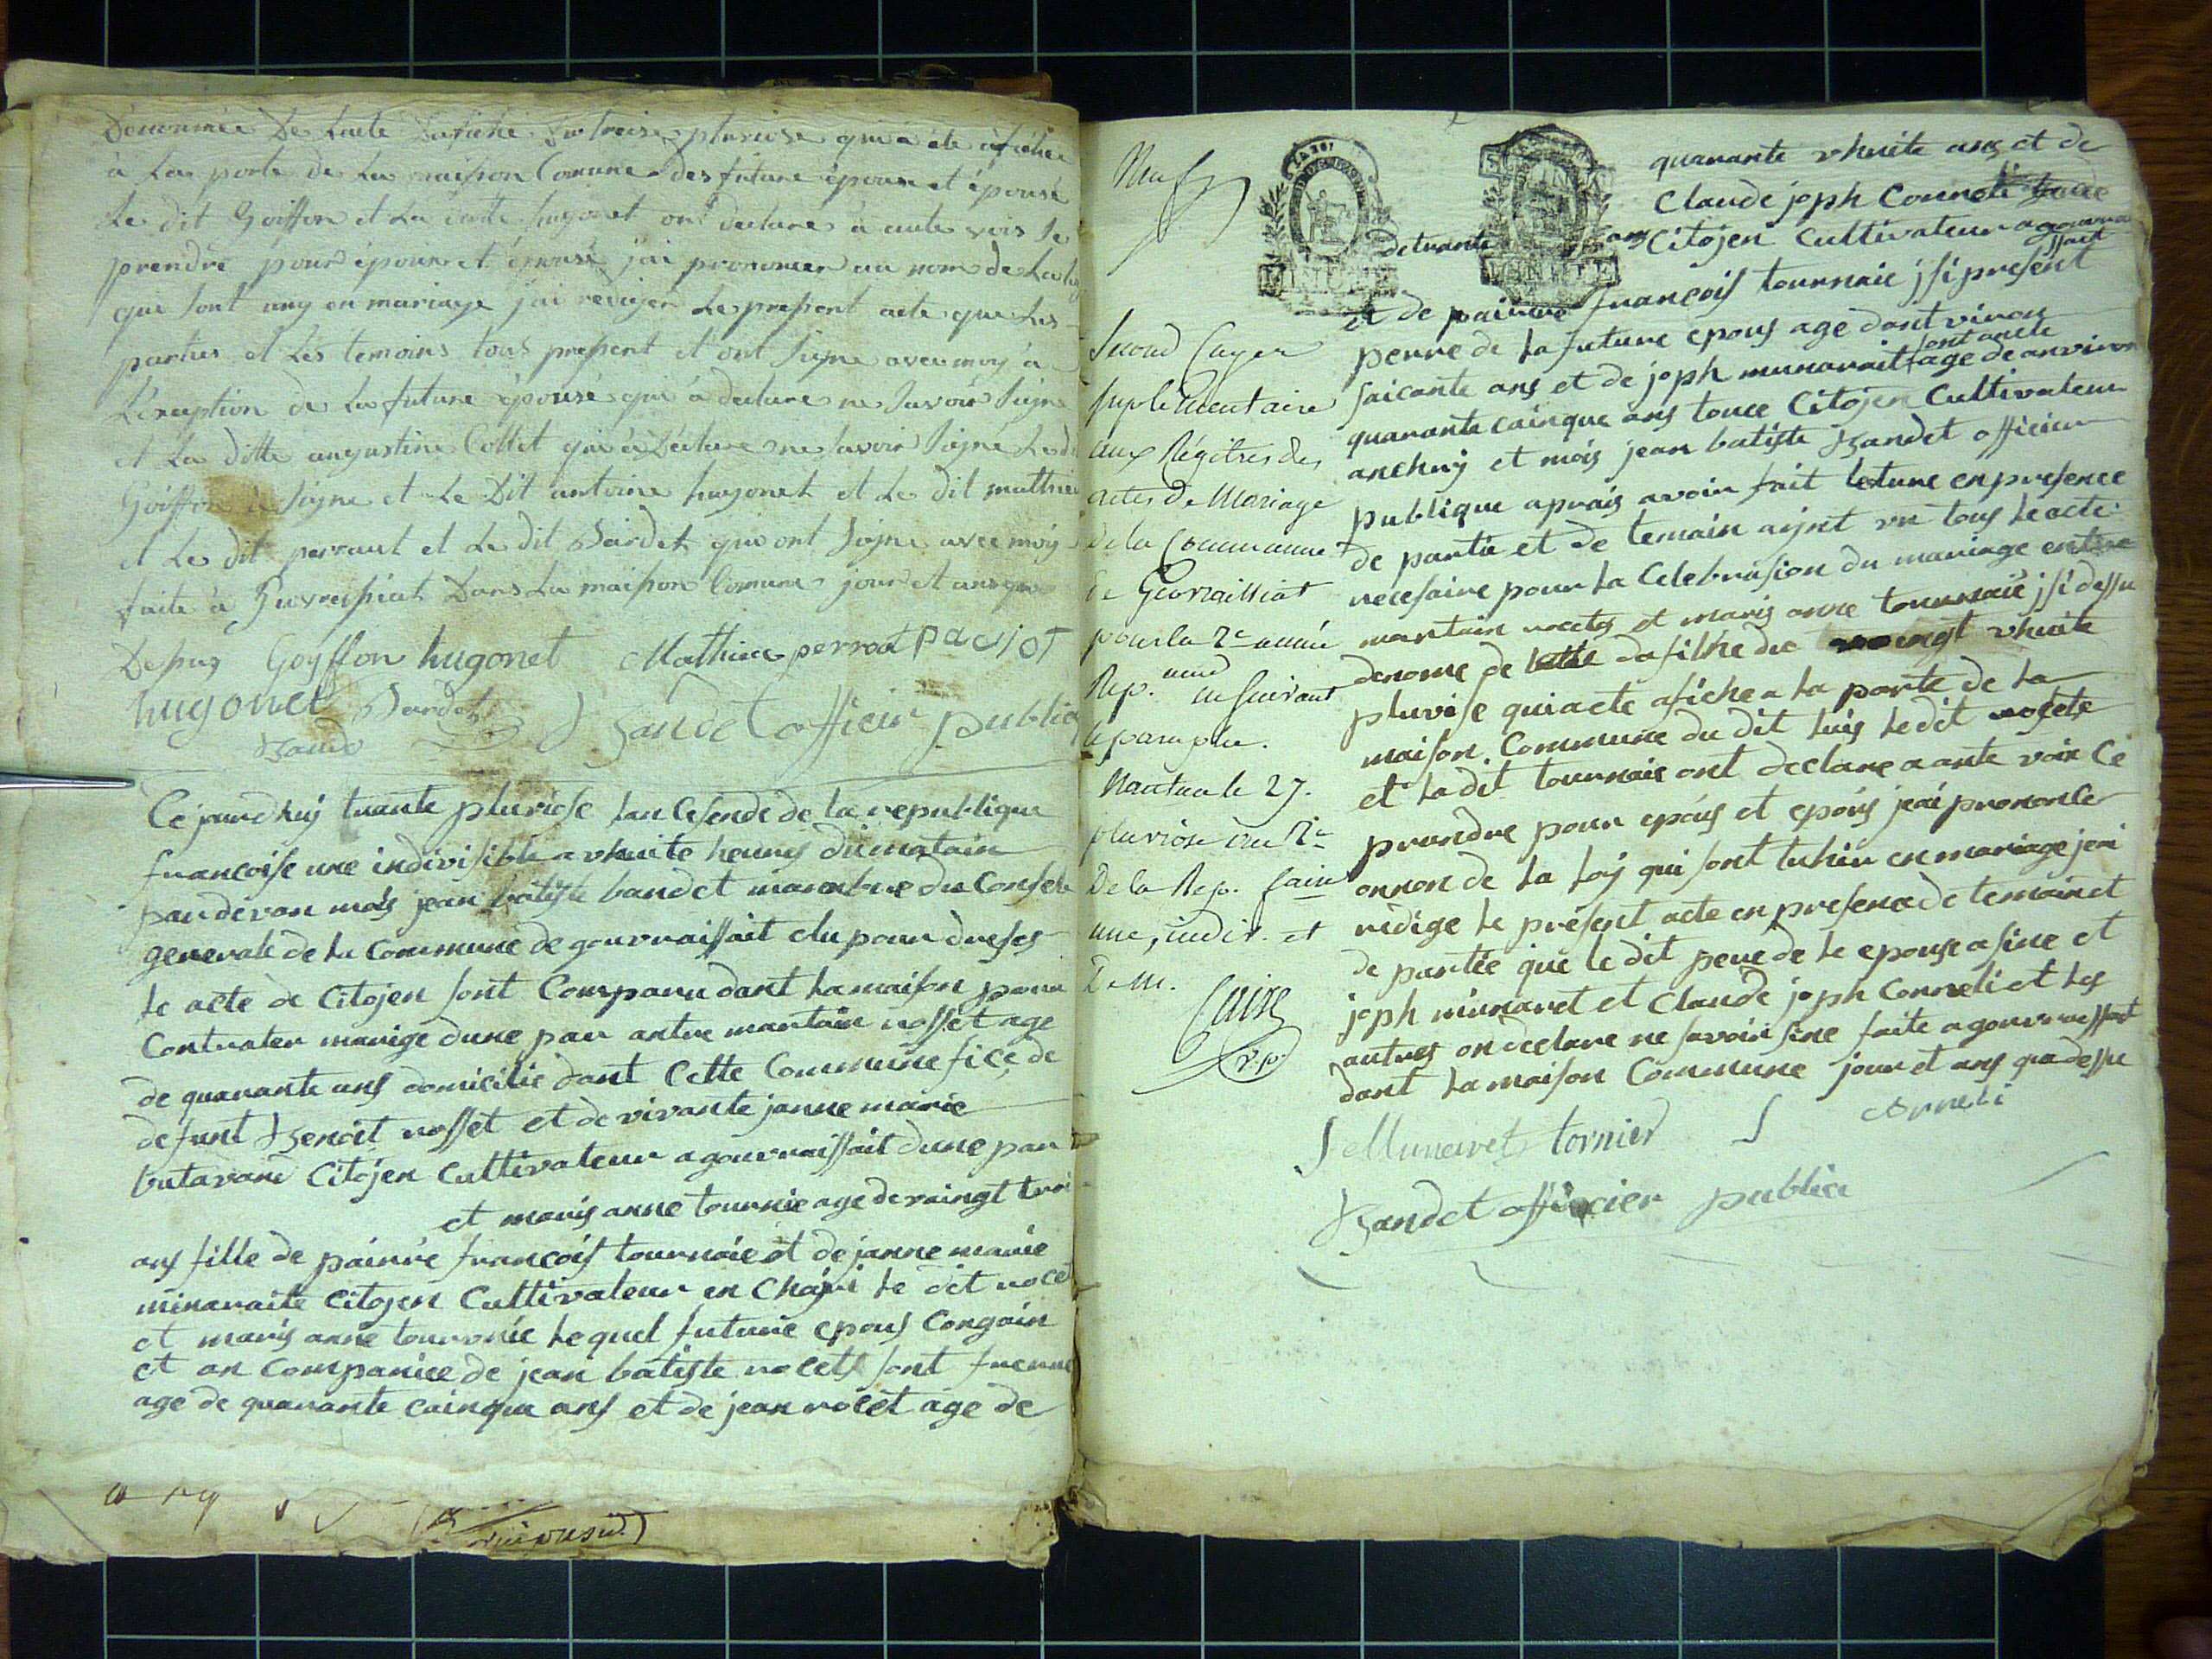 De lacte qui a été
à la porte de la maison Comune des future époux et épouse
Le dit Goiffon et La ditte hugonet ont declare a aute vois Se
prendre pour époux et épouse jai prononcer au nom de La loy
que sont uny en mariage jai rediger Le present acte que Les
parties et Les temoins tous present et ont Signe avec moy à
L'exception de La future épouse qui à declare ne Savoir Signe
et La ditte augustine Collet qui à Déclare ne savoir Signe Le dit
Goiffon à Signe et Le Dit antoine hugonet et Le dit mathieu
et Le dit perraut et Le dit Bardet qui ont Signe avec moy
faite à Dans La maison Comune jour et ans que
Depuy Goyffon hugonet Mathieu perrod pacjot
hugonet Bardet Bandet officier public
Ce jourdhuj trante pluviose lan Cesende de la republique
francoise une indivisible a vhuite heures du matain
par devan mois jean batiste bandet manbre du Consele
generale de la Commune de gouvraissait elu pour dreses
le acte de Citojen sont Comparu dant la maison pour
Contrater marige dune par antre martain rosset age
de quarante ans domicilie dant Cette Commune fice de
defunt Benoit rosset et de vivante janne marie
butavant Citojen Cultivateur a gouvraissait dune par
et maris anne tournie age de vaingt troi
ans fille de painre francois tournaie et de janne marie
minaraite Citojen Cultivateur en Chajvi le dit rocet
et maris anne tournie lequel future epous Congoin
et an Companiee de jean batiste rocets sont frenne
age de quarante cainque ans et de jean rocet age de
Neuf
Second Cayer
suplementaire
aux Régitres des
actes de Mariage
de la Commune
de Gevraissiat
pour la 2e année
Rep. neuf au suivant
le paraphe.
Nantua le 27.
pluviose an 2e
De la Rep. faire
une, indiv. et
Dem.
quarante vhuite ans et de
Claude joph Corneli
de trante ans Citojen Cultivateur a gouvraissait
et de painre francois tournaie jsi present
perre de la future epous age dant viron
saicante ans et de joph munarait sont oncle age de anviron
quarante cainque ans touce Citojen Cultivateur
anchuj et mois jean batiste Bandet officier
publique aprais avoir fait letture en presence
de partie et de temain aijnt vu tous le acte
necesaire pour la Celebrasion du mariage entre
martain rocets et maris anne tournaie jsi dessu
denome de dafiche du vaingt vhuite
pluvise qui a ete afiche a la porte de la
maison Commune du dit luis le dit rosete
et la dit tournaie ont declare a aute voix Ce
prandre pour epous et epous jeai prononcer
onnon de la loj qui sont en mariage jeai
redige le present acte en presence de temain et
de partie que le dit pere de le epouse a sine et
joph munaret et Claude joph Corneli et les
autres on declare ne savoir sine faite a gouvraissait
dant la maison Commune jour et ans que dessu
J Munaret tornier J Corneli
Bandet officier publice